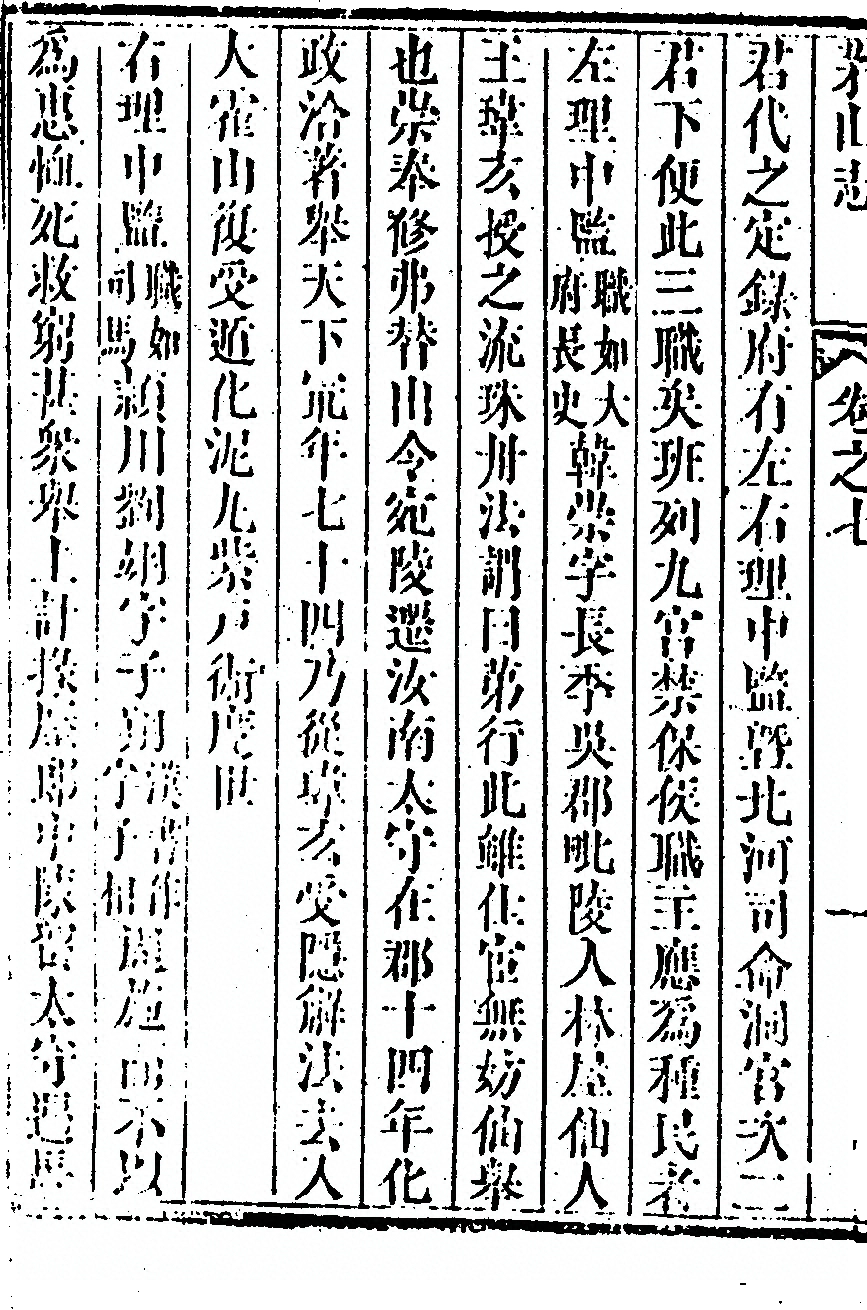 茅山志 卷之七 一
君代之定錄府有左右理中監暨北河司命洞官次二
君下便此三職矣班列九宮禁保侯職主應為種民者
左理中監職如大府長史韓崇字長季吳郡毗陵人林屋仙人
王瑋玄授之流珠丹法謂曰第行此雖仕宦無妨仙舉
也崇奉修弗替出令宛陵遷汝南太守在郡十四年化
政洽著舉天下冣年七十四乃從瑋玄受隱解法去入
大霍山復受遁化泥丸紫戶術度世
右理中監職如司馬潁川劉翊字子翔漢書作字子相 施而不以
為惠恤死救窮甚衆舉上計掾 郎中陳留太守遇馬